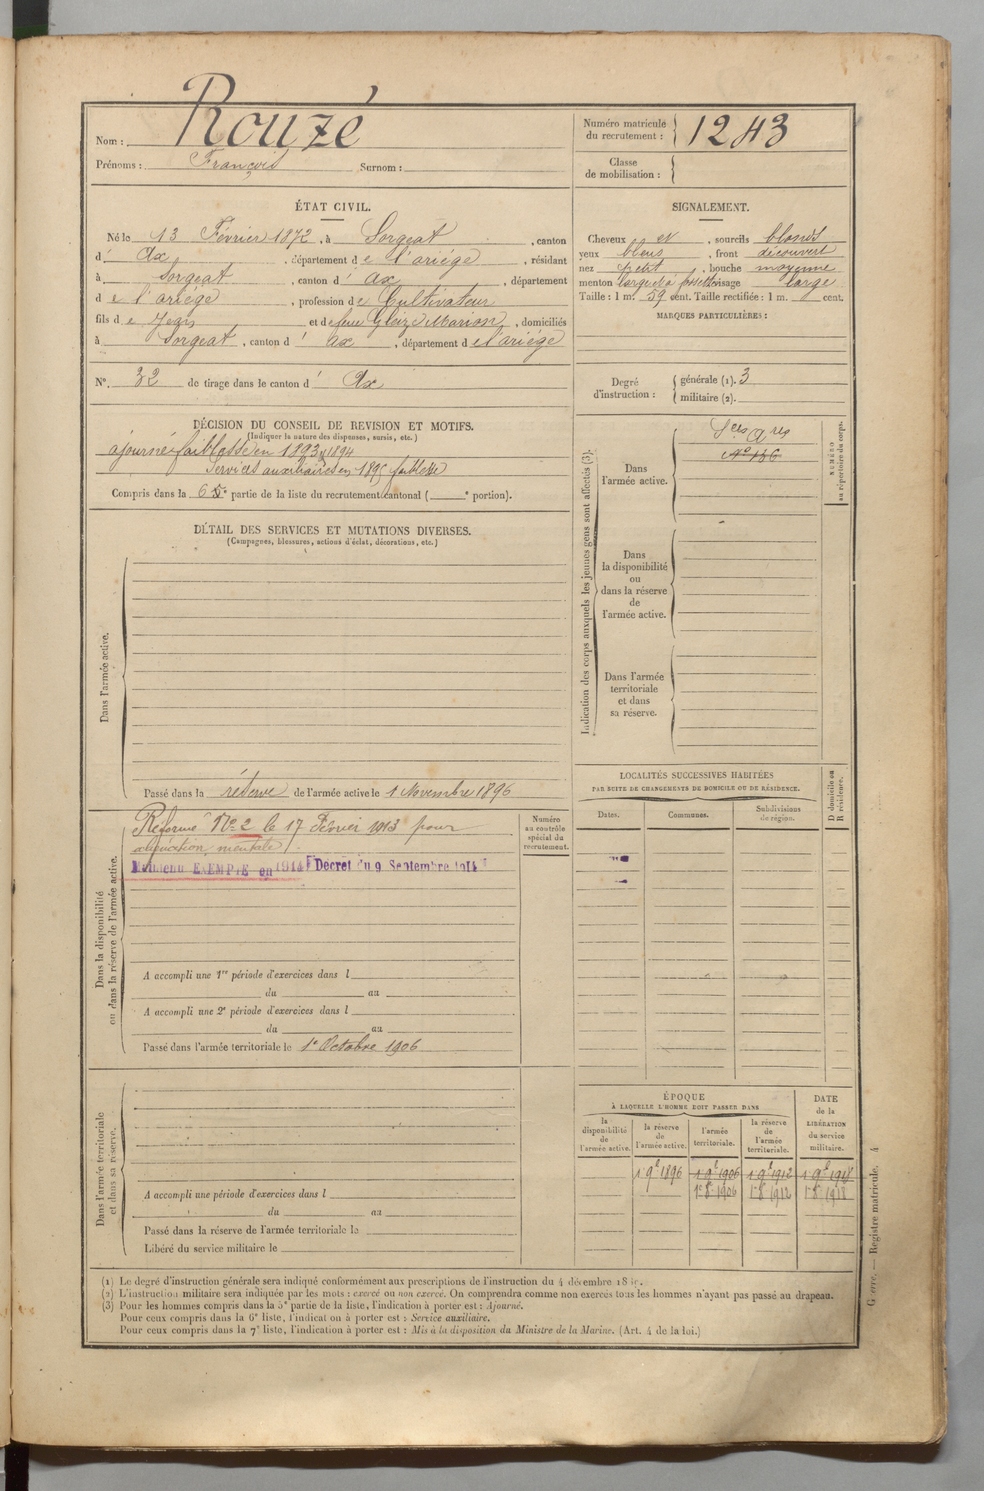 Nom : Rouzé
Prénoms : François Surnom :
Numéro matricule du recrutement : 1243
Classe de mobilisation :
ÉTAT CIVIL.
Né le 13 Février 1872, à Sorgeat, canton
d' Ax, département de l'ariége, résidant
à Sorgeat, canton d' ax, département
de l'ariége, profession de Cultivateur
fils de Jean et de feue Gleizes Marion, domiciliés
à Sorgeat, canton d' ax, département de l'ariége
N°. 32 de tirage dans le canton d' Ax
SIGNALEMENT.
Cheveux et, sourcils blonds
yeux bleus, front découvert
nez petit, bouche moyenne
menton large et à fossette visage large
Taille : 1 m. 59 cent. Taille rectifiée : 1 m. cent.
MARQUES PARTICULIÈRES :
Degré d'instruction : générale (1). 3
militaire (2).
DÉCISION DU CONSEIL DE REVISION ET MOTIFS.
(Indiquer la nature des dispenses, sursis, etc.)
ajourné faiblesse en 1893 & 1894
Services auxiliaires en 1895 faiblesse
Compris dans la 6e partie de la liste du recrutement cantonal ( e portion).
DÉTAIL DES SERVICES ET MUTATIONS DIVERSES.
(Campagnes, blessures, actions d'éclat, décorations, etc.)
Dans l'armée active.
Passé dans la réserve de l'armée active le 1 Novembre 1896
Indication des corps auxquels les jeunes gens sont affectés (3).
NUMÉRO au répertoire du corps.
Dans l'armée active.
Sces Ares
N° 136
Dans la disponibilité ou dans la réserve de l'armée active.
Dans l'armée territoriale et dans sa réserve.
Dans la disponibilité ou dans la réserve de l'armée active.
Réformé N° 2 le 17 Février 1913 pour
aliénation mentale
Maintenu EXEMPTÉ en 1914 Décret du 9 Septembre 1914
Numéro au contrôle spécial du recrutement.
A accompli une 1re période d'exercices dans l
du au
A accompli une 2e période d'exercices dans l
du au
Passé dans l'armée territoriale le 1e Octobre 1906
LOCALITÉS SUCCESSIVES HABITÉES
PAR SUITE DE CHANGEMENTS DE DOMICILE OU DE RÉSIDENCE.
D domicile ou R résidence.
Dates. Communes. Subdivisions de région.
Dans l'armée territoriale et dans sa réserve.
A accompli une période d'exercices dans l
du au
Passé dans la réserve de l'armée territoriale le
Libéré du service militaire le
ÉPOQUE
À LAQUELLE L'HOMME DOIT PASSER DANS
DATE de la LIBÉRATION du service militaire.
la disponibilité de l'armée active.
la réserve de l'armée active.
l'armée territoriale.
la réserve de l'armée territoriale.
1 9e 1896 1 9e 1906 1 9e 1912 1 9e 1918
1e 8e 1906 1e 8e 1912 1e 8e 1918
(1) Le degré d'instruction générale sera indiqué conformément aux prescriptions de l'instruction du 4 décembre
(2) L'instruction militaire sera indiquée par les mots : exercé ou non exercé. On comprendra comme non exercés tous les hommes n'ayant pas passé au drapeau.
(3) Pour les hommes compris dans la 5e partie de la liste, l'indication à porter est : Ajourné.
Pour ceux compris dans la 6e liste, l'indication à porter est : Service auxiliaire.
Pour ceux compris dans la 7e liste, l'indication à porter est : Mis à la disposition du Ministre de la Marine. (Art. 4 de la loi.)
Guerre. — Registre matricule. 4